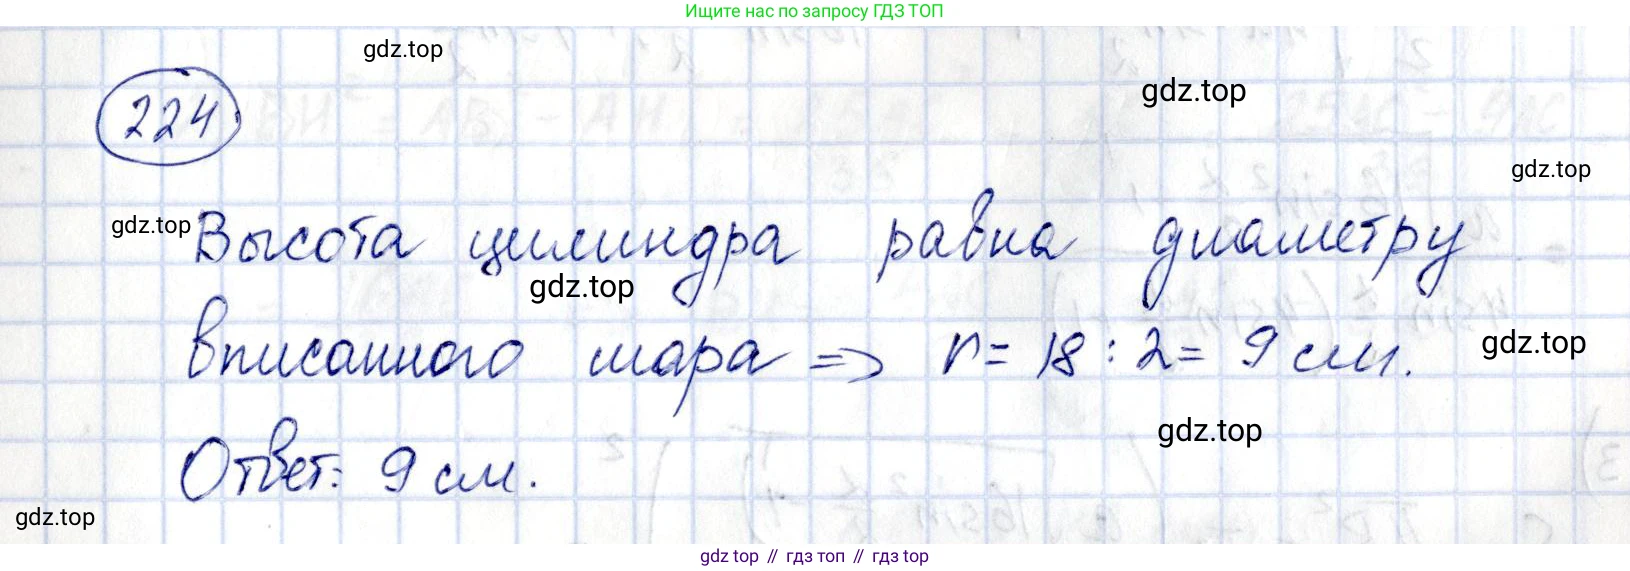 Ищите нас по запросу ГДЗ ТОП
gdz.top
224
gdz.top
gdz.top
gdz.top
Высота цилиндра равна диаметру
gdz.top
вписанного шара => r = 18 : 2 = 9 см.
gdz.top
gdz.top
Ответ: 9 см.
gdz.top
gdz top // гдз топ // гдз top